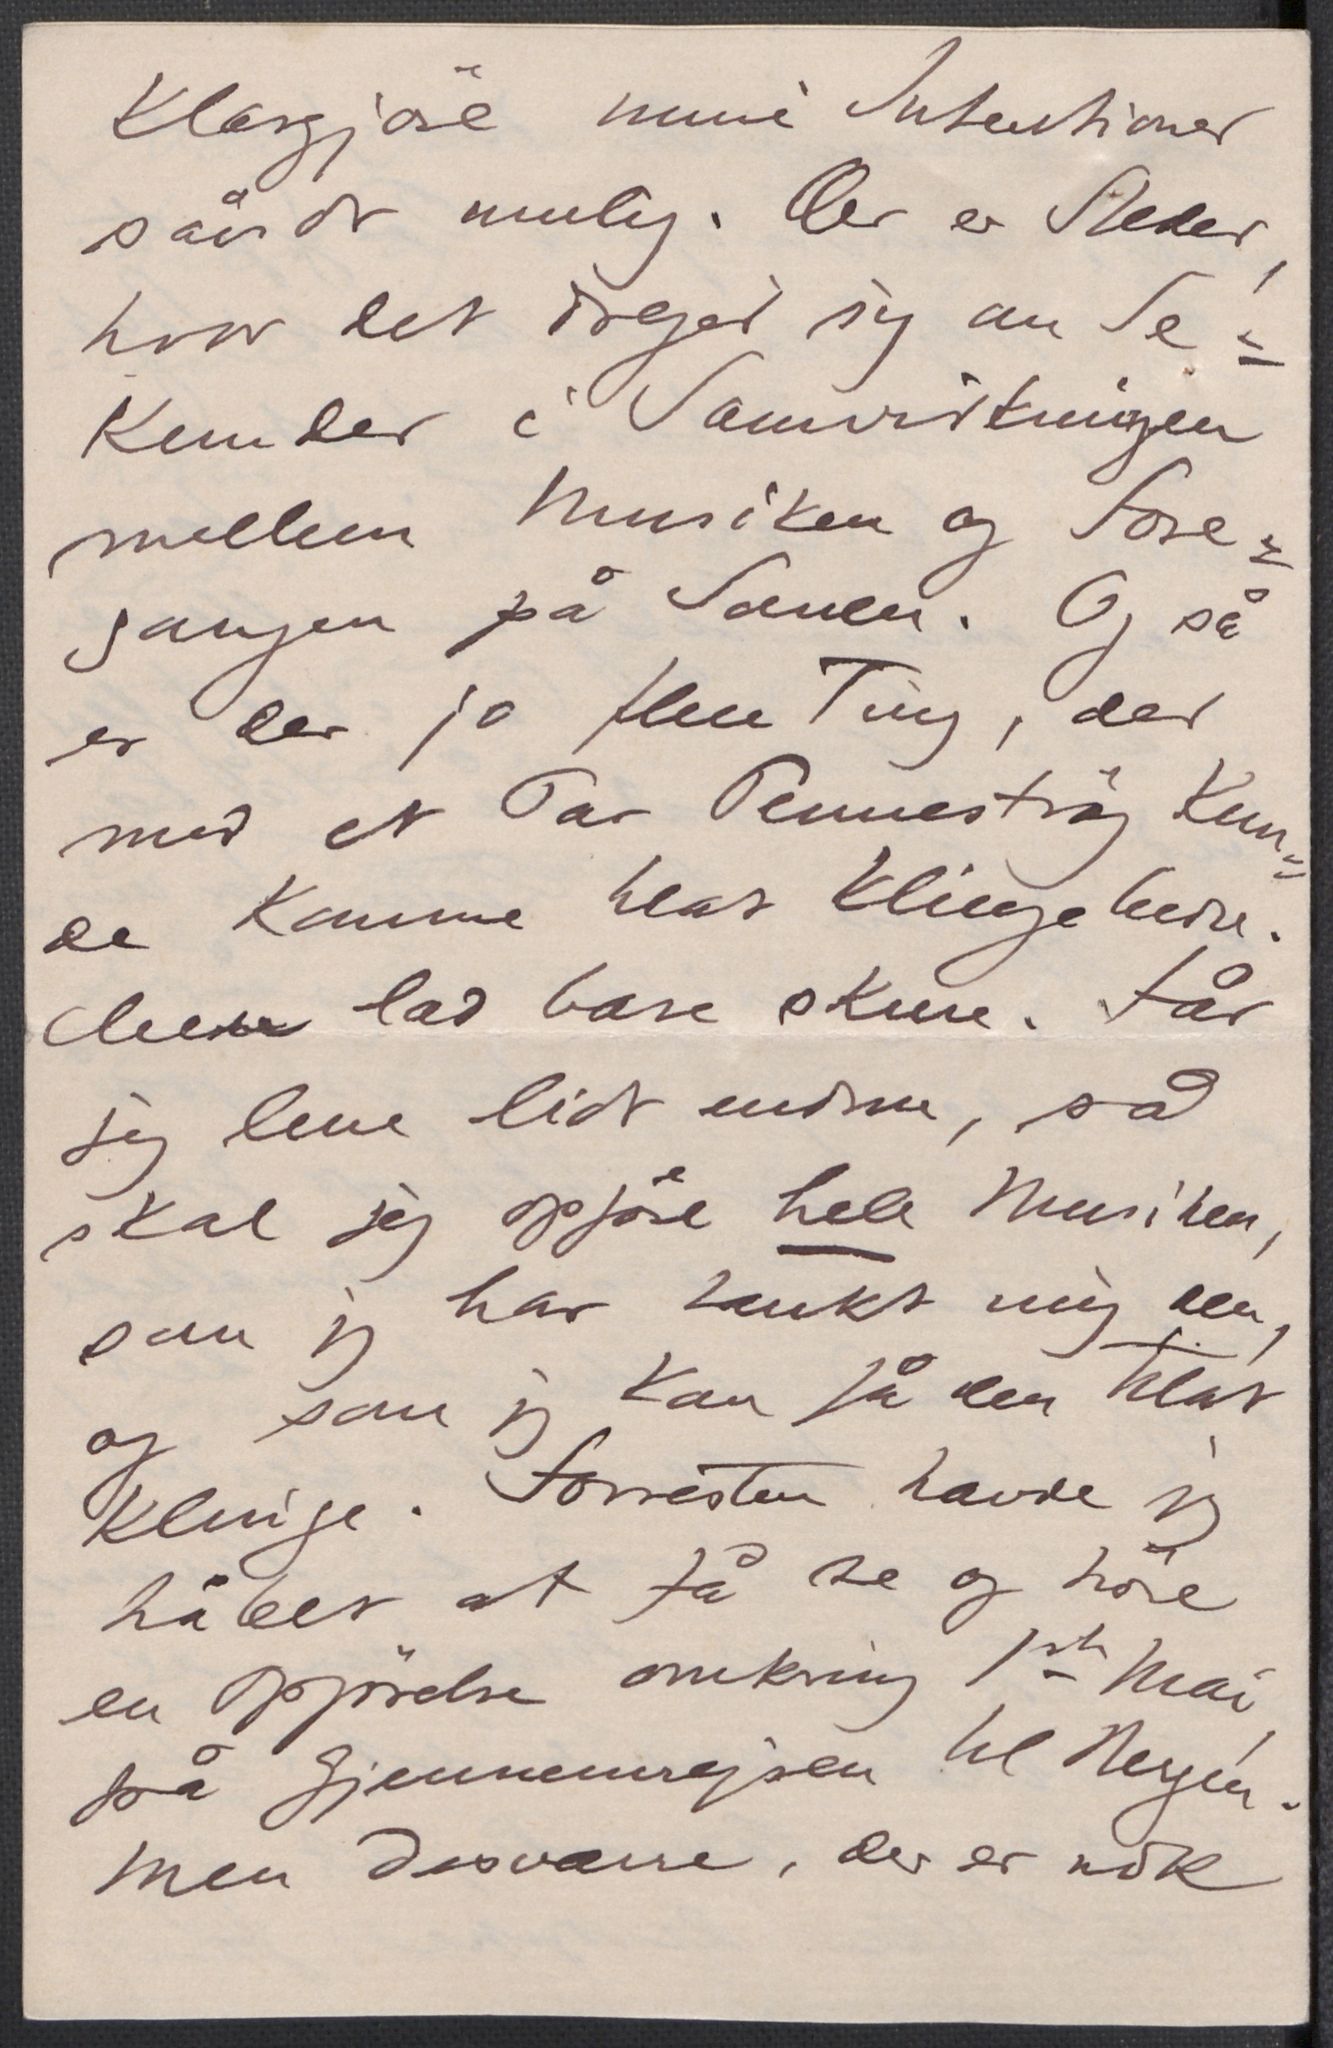 klargjøre mine Intentioner
såvidt mulig. Der er Steder,
hvor det drejer sig om Se=
kunder i Samvirkningen
mellem Musiken og Fore=
gangen på Scenen. Og så
er der jo flere Ting, der
med et Par Pennestrøg kun=
de komme til at klinge bedre.
Men lad bare skure. Får
jeg leve lidt endnu, så
skal jeg opføre hele Musiken,
som jeg har tænkt mig den,
og som jeg kan få den til at
klinge. Forresten havde jeg
håbet at få se og høre
en Opførelse omkring 1ste Mai,
på Gjennemrejsen til Bergen.
Men desværre, der er nok